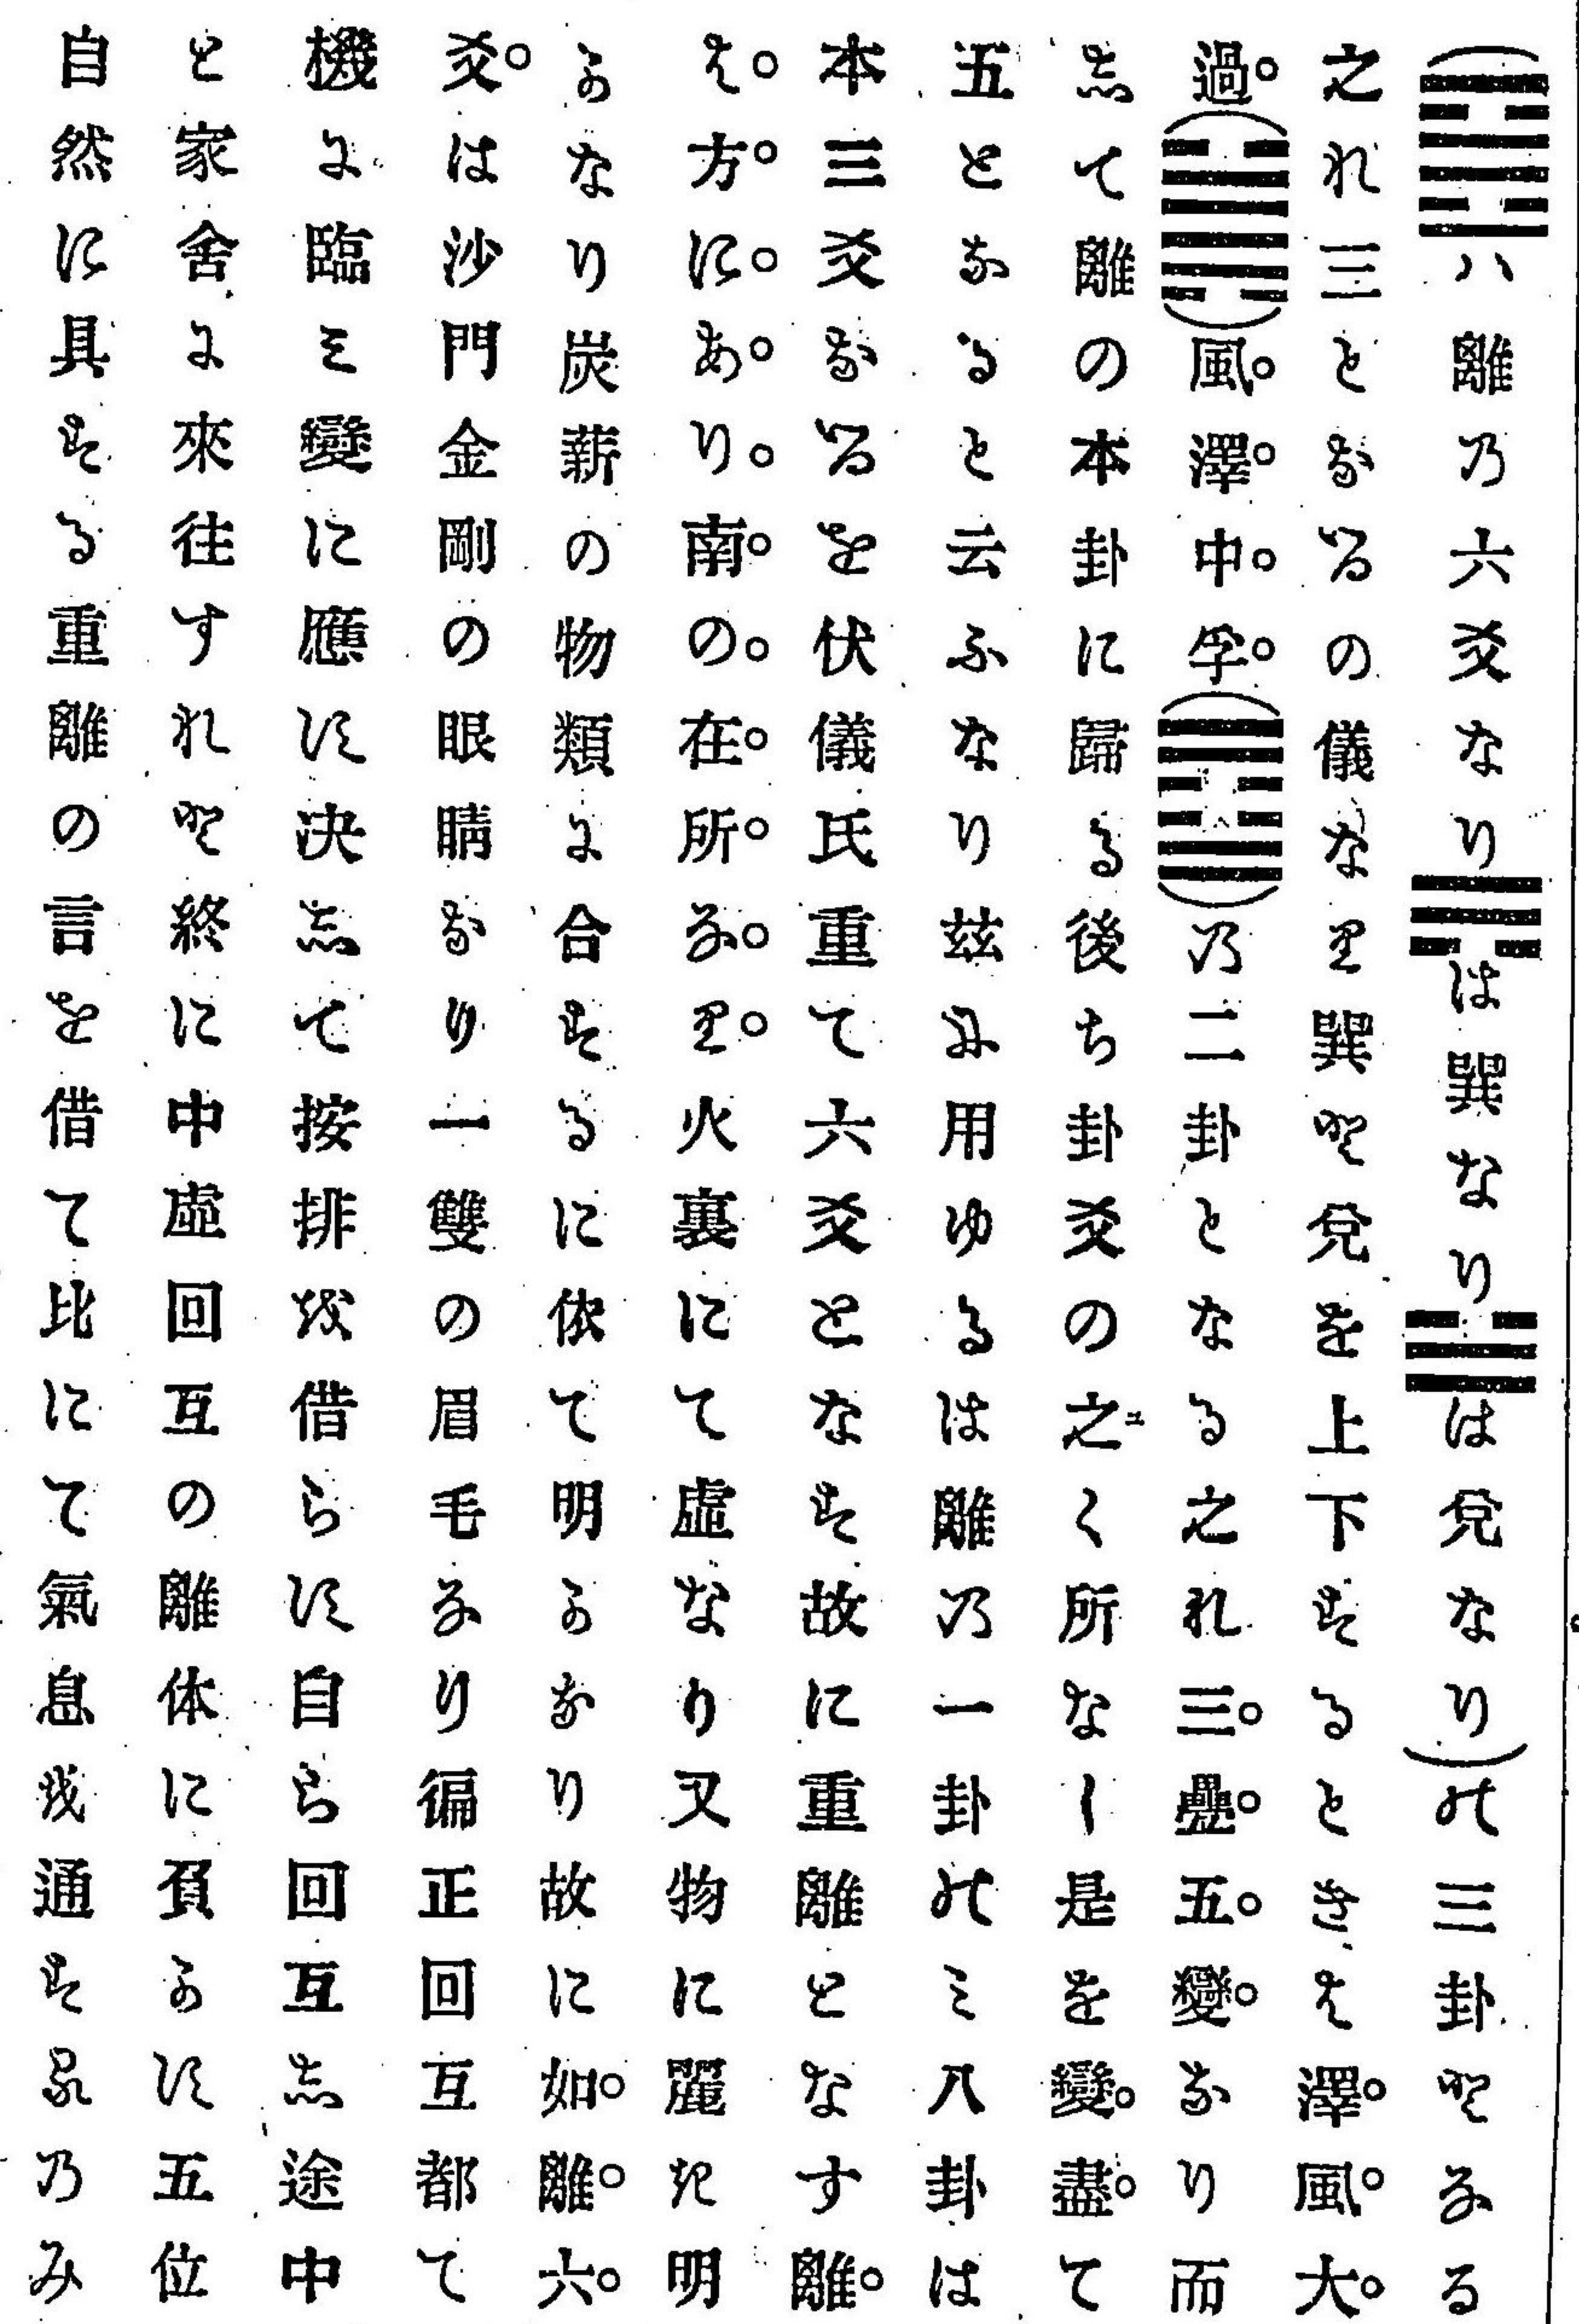 (䷝ハ離乃六爻なり☴は巽なり☱は兌なり)の三卦となる
之れ三となるの儀なり巽と兌を上下するときは澤風大
過(䷛)風澤中孚(䷼)乃二卦となる之れ三疊五變なり而
して離の本卦に歸る後ち卦爻の之ユく所なし是を變盡て
五となると云ふなり茲に用ゆるは離乃一卦のミ八卦は
本三爻なるを伏儀氏重て六爻となす故に重離となす離
は方にあり南の在所なり火裏にて虛なり又物に麗き明
かなり炭薪の物類に合するに依て明かなり故に如離六
爻は沙門金剛の眼睛なり一雙の眉毛なり徧正回互都て
機に臨ミ變に應す决して按排を借らす自ら回互し途中
と家舍に來往すれと終に中虛回互の離体に負かす五位
自然に具する重離の言を借て比にて氣息を通する乃み